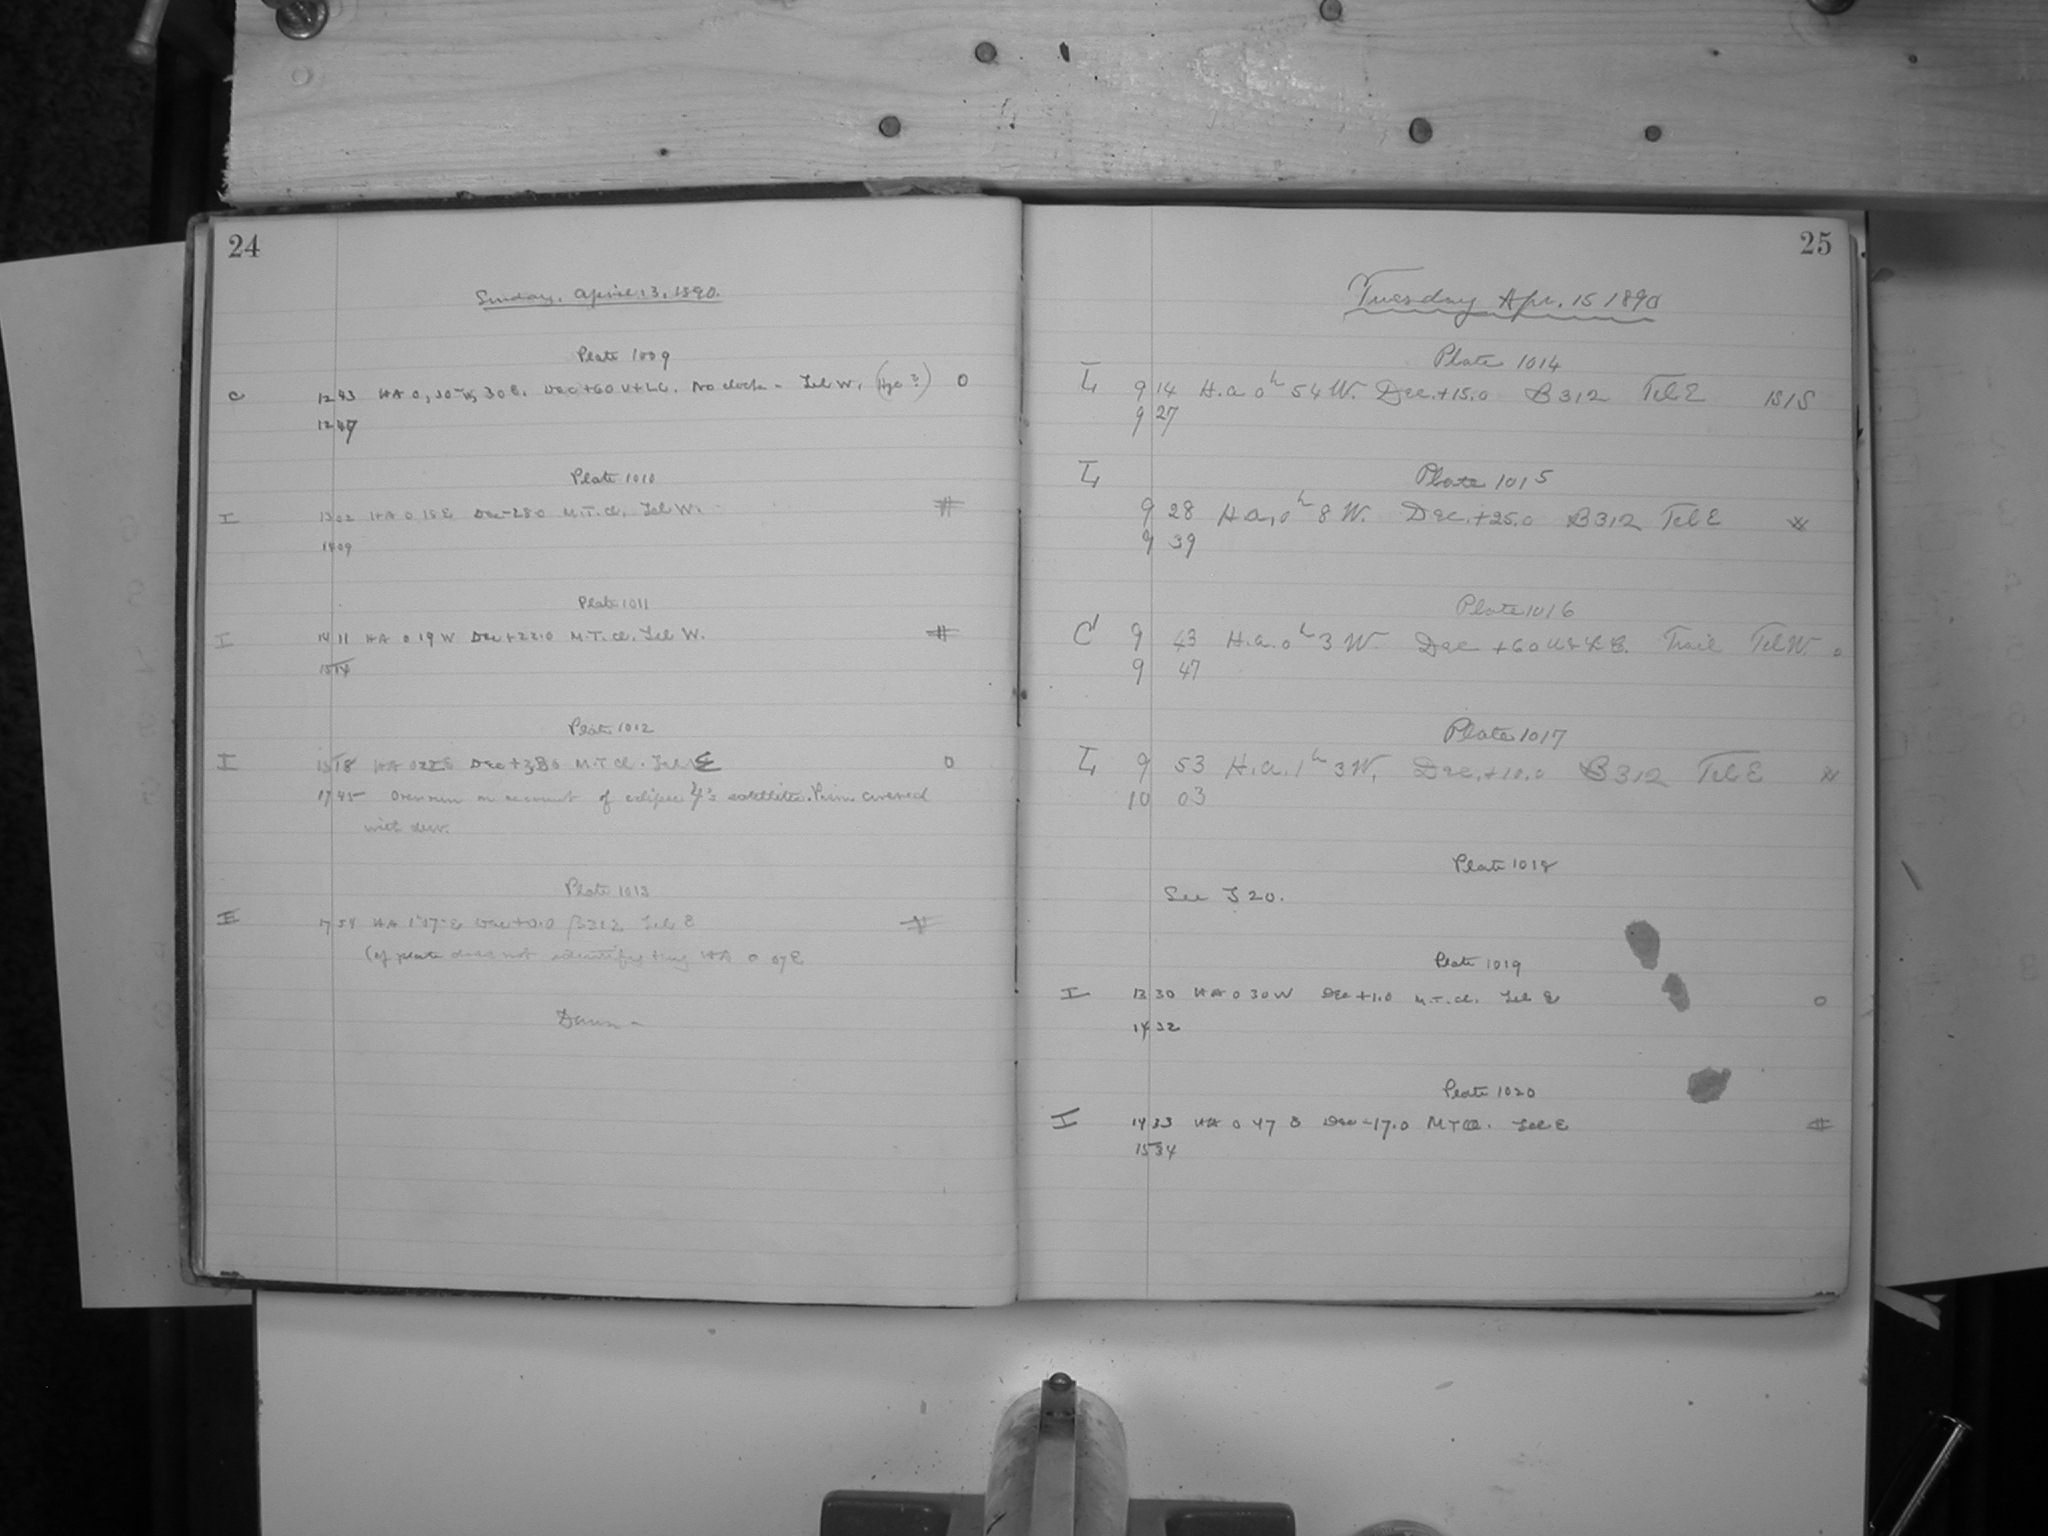 24
Sunday. April 13, 1890.
Plate 1009
C 12 43 HA 0, 30 W, 30 E. Dec +60 U+LC. No clock - Tel W. 0
12 47
Plate 1010
I 13 02 HA 0 18 E Dec -28.0 M.T. cl. Tel W.
14 09
Plate 1011
I 14 11 HA 0 19 W Dec +22.0 M.T. cl. Tel W.
15 14
Plate 1012
I 15 18 HA 0 22 E Dec +38.0 M.T. cl. Tel E 0
17 45 Overrun on account of eclipse ♃'s satellite. Prism covered
with dew.
Plate 1013
I 17 54 HA 1 17 E Dec +0.0 B312 Tel E
(if plate does not identify try HA 0 07 E
Dawn -
25
Tuesday Apr. 15 1890
Plate 1014
I 9 14 H.a 0h 54 W. Dec. +15.0 B 312 Tel E
9 27
I Plate 1015
9 28 H a, 0h 8 W. Dec. +25.0 B 312 Tel E
9 39
Plate 1016
C 9 43 H.a. 0h 3 W. Dec +60 U & L C. Trail Tel W. 0
9 47
Plate 1017
I 9 53 H.a. 1h 3 W. Dec. +10.0 B 312 Tel E
10 03
Plate 1018
See I 20.
Plate 1019
I 13 30 HA 0 30 W Dec +1.0 M.T. cl. Tel E 0
14 32
Plate 1020
I 14 33 HA 0 47 E Dec -17.0 M T cl. Tel E
15 34